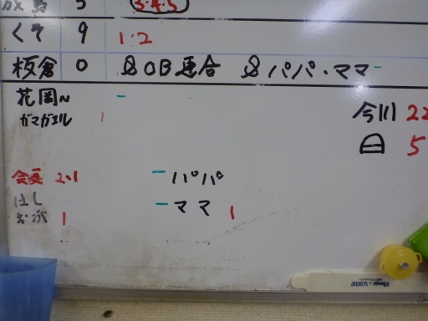 5 3・4・5
くそ 9 1:2
板倉 0 OB連合 パパ・ママ
花岡N
ガマガエル 1
今川 22
日 5
会長 2:1
パパ
ほし ママ 1
1